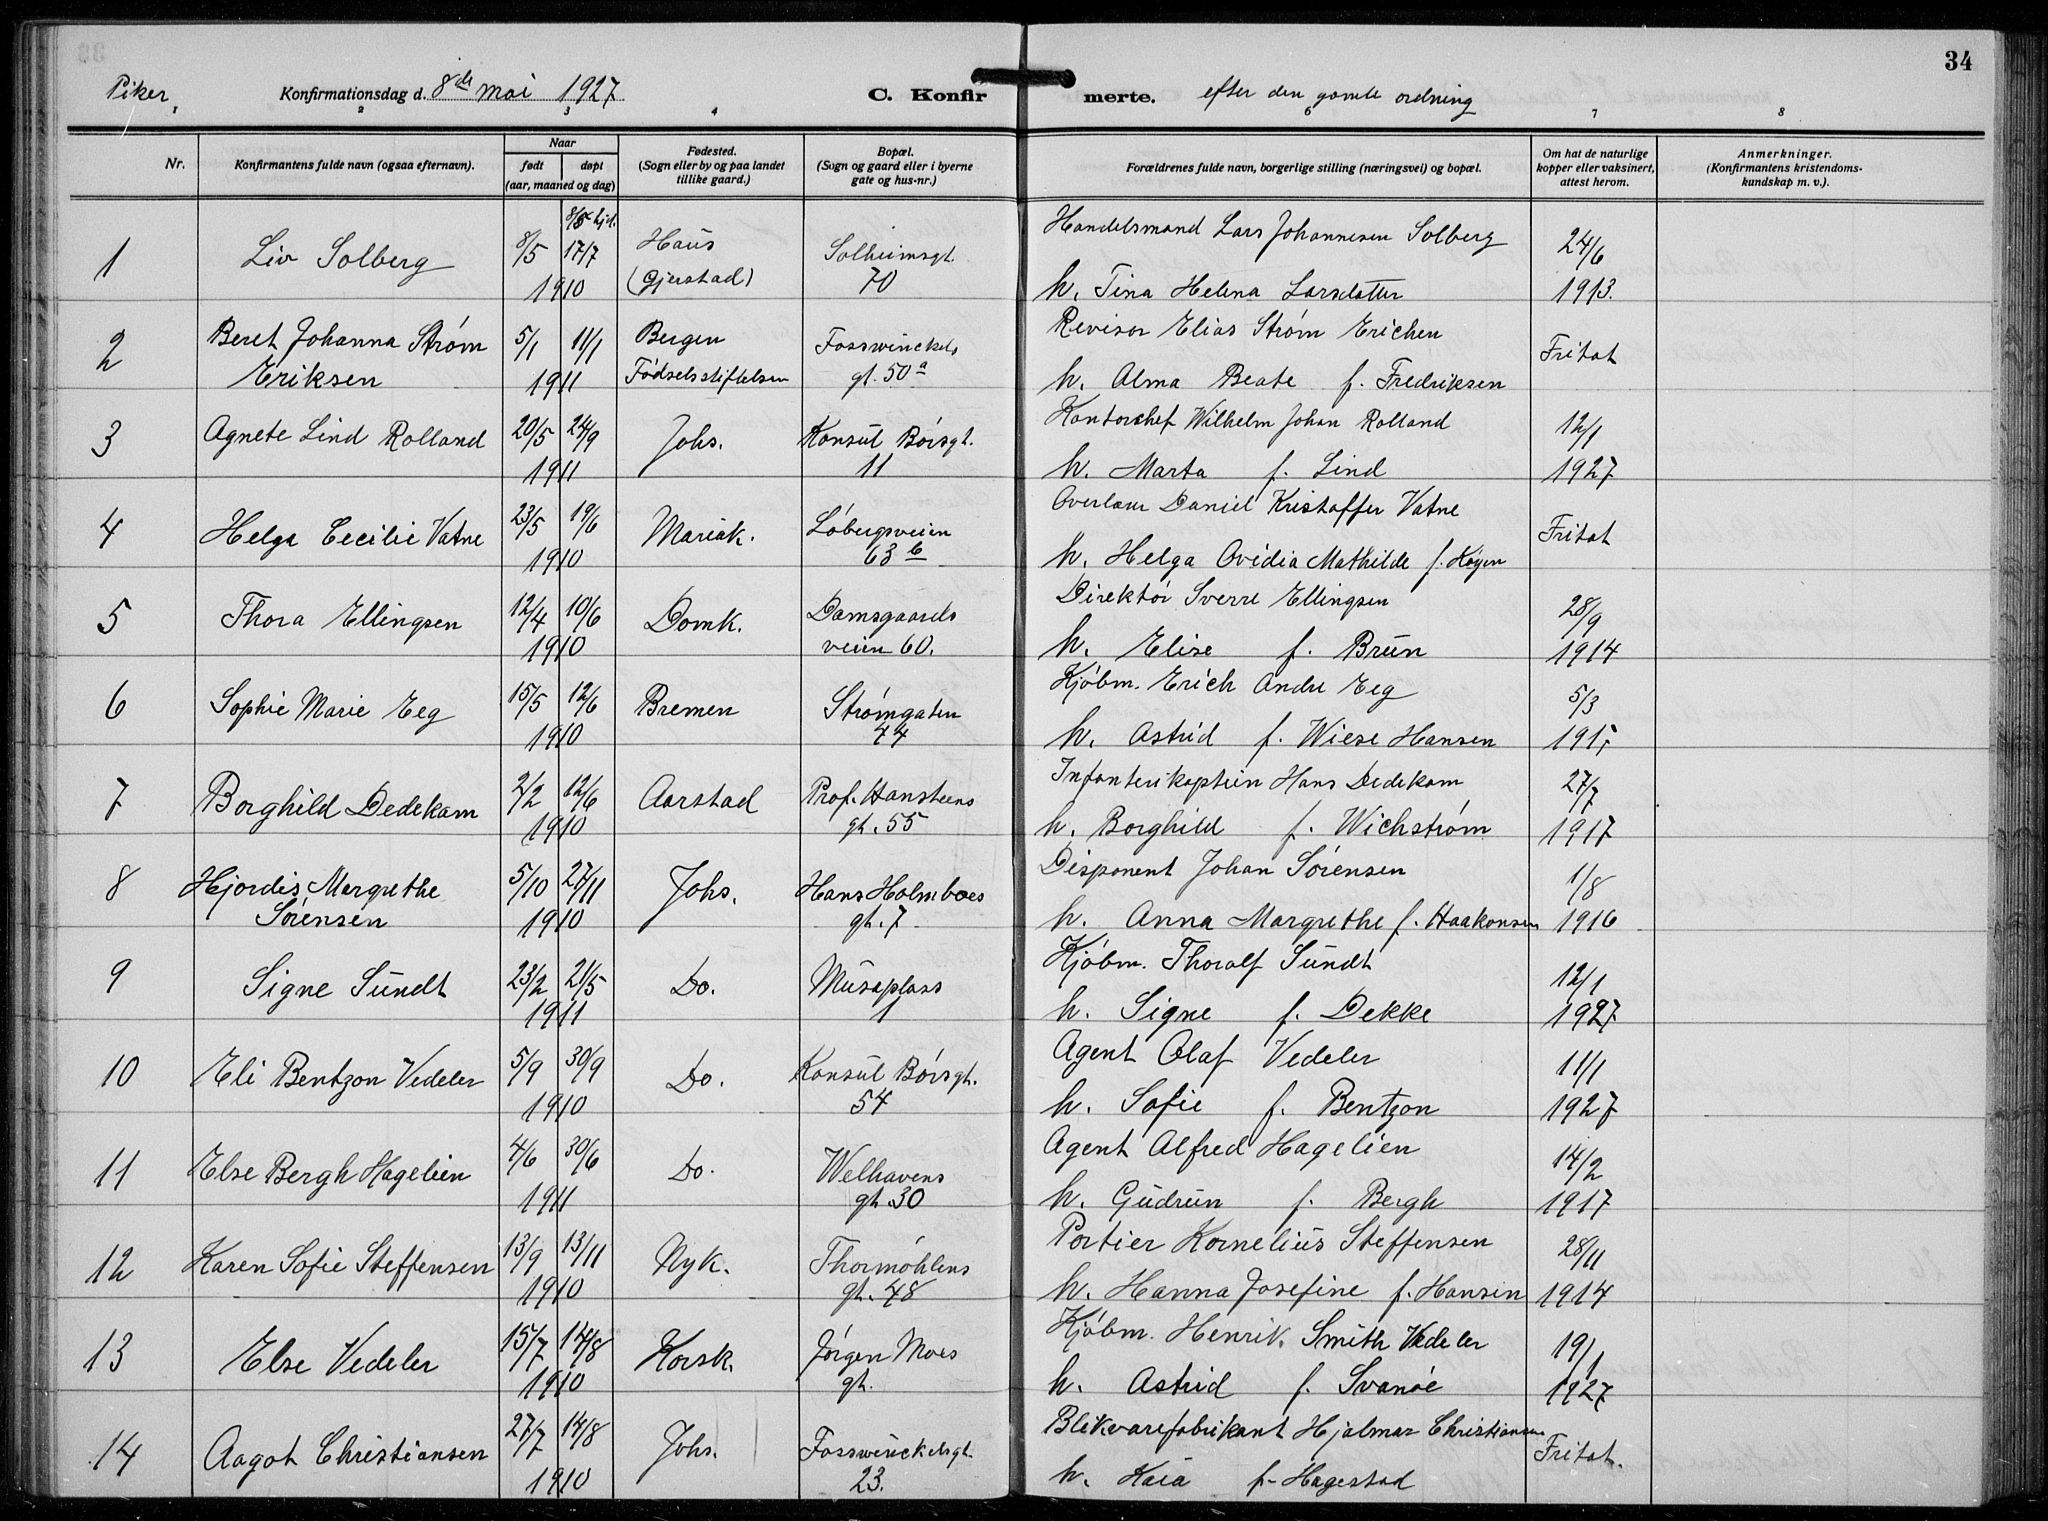 34
Piker
Konfirmationsdag d. 8de mai 1927
C. Konfirmerte. efter den gamle ordning
1 2 3 4 6 7 8
Nr.
Konfirmantens fulde navn (ogsaa efternavn).
Naar
født
døpt
(aar, maaned og dag)
Fødested.
(Sogn eller by og paa landet
tillike gaard.)
Bopæl.
(Sogn og gaard eller i byerne
gate og hus-nr.)
Forældrenes fulde navn, borgerlige stilling (næringsvei) og bopæl.
Om hat de naturlige
kopper eller vaksinert,
attest herom.
Anmerkninger.
(Konfirmantens kristendoms-
kundskap m. v.).
1 Liv Solberg 8/5 17/7 1910 Haus (Gjerstad) Solheimsgt. 70 Handelsmand Lars Johannesen Solberg 24/6
h. Tina Helena Larsdatter 1913.
2 Beret Johanna Strøm Eriksen 5/1 11/1 1911 Bergen Fødselsstiftelsen Fosswinckels gt. 50a Revisor Elias Strøm Erichen Fritat
h. Alma Beate f. Fredriksen
3 Agnete Lind Rolland 20/5 24/9 1911 Johs. Konsul Børsgt. 11 Kontorchef Wilhelm Johan Rolland 12/1
h. Marta f. Lind 1927
4 Helga Cecilie Vatne 23/5 19/6 1910 Mariak. Løbergsveien 63 b Overlær Daniel Kristoffer Vatne Fritat
h. Helga Ovidia Mathilde f. Høyen
5 Thora Ellingsen 12/4 10/6 1910 Domk. Damsgaards veien 60. Direktør Sverre Ellingsen 28/9
h. Elise f. Brun 1914
6 Sophie Marie Eeg 15/5 12/6 1910 Bremen Strømgaten 44 Kjøbm. Erich Andre Eeg 5/3
h. Astrid f. Wiese Hansen 1915
7 Borghild Dedekam 2/2 12/6 1910 Aarstad Prof. Hansteens gt. 55 Infanterikaptein Hans Dedekam 27/7
h. Borghild f. Wichstrøm 1917
8 Hjordis Margrethe Sørensen 5/10 27/11 1910 Johs. Hans Holmboes gt. 7 Disponent Johan Sørensen 1/8
h. Anna Margrethe f. Haakonsen 1916
9 Signe Sundt 23/2 21/5 1911 Do. Museplass 1 Kjøbm. Thoralf Sundt 12/1
h. Signe f. Dekke 1927
10 Eli Bentzon Vedeler 5/9 30/9 1910 Do. Konsul Børsgt. 54 Agent Olaf Vedeler 11/1
h. Sofie f. Bentzon 1927
11 Else Bergh Hagelien 4/6 30/6 1911 Do. Welhavens gt. 30 Agent Alfred Hagelien 14/2
h. Gudrun f. Bergh 1917
12 Karen Sofie Steffensen 13/9 13/11 1910 Nyk. Thormøhlens gt. 48 Portier Kornelius Steffensen 28/11
h. Hanna Josefine f. Hansen 1914
13 Else Vedeler 15/7 14/8 1910 Korsk. Jørgen Moes gt. Kjøbm. Henrik Smith Vedeler 19/1
h. Astrid f. Svanøe 1927
14 Aagot Christiansen 27/7 14/8 1910 Johs. Fosswinckelsgt. 23. Blikvarefabrikant Hjalmar Christiansen Fritat.
h. Kaia f. Hagestad